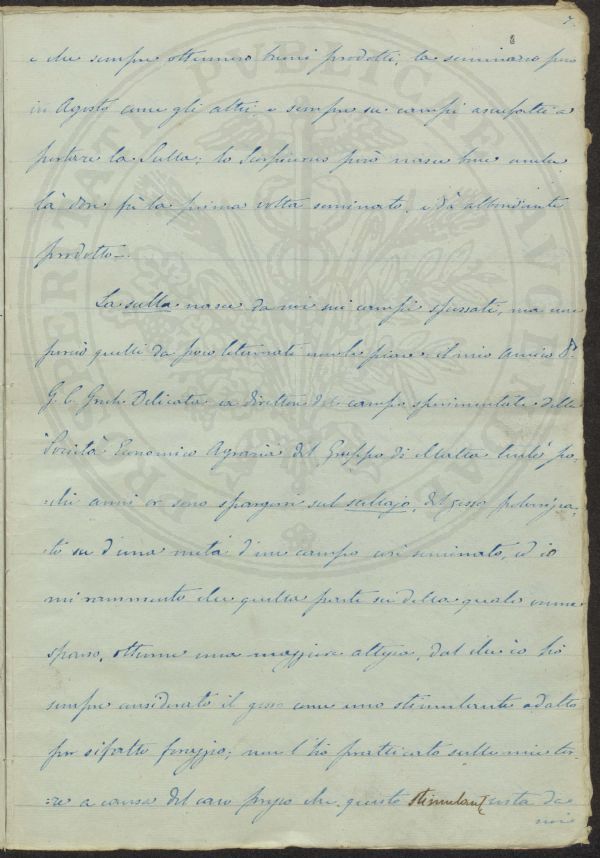 7.
e che sempre ottennero buoni prodotti, la seminano però
in Agosto come gli altri e sempre su campi assuefatti a
portare la Sulla; lo Scorpiurus però nasce bene anche
là dove fù la prima volta seminato, e dà abbondante
prodotto.
La sulla nasce da noi nei campi spossati, ma non
perciò quelli da poco letamati non le piace: il mio Amico Dr.
G. C. Grech Delicata ex direttore del campo sperimentale della
Società Economico Agraria del Gruppo di Malta tentò po-
:chi anni or sono spargere sul sullajo, del gesso polverizza-
to su d'una metà d'un campo così seminato, ed io
mi rammento che quella parte su della quale venne
sparso, ottenne una maggiore altezza, dal che io ho
sempre considerato il gesso come uno stimolante adatto
per siffatto foraggio; non l'ho pratticato sulle mie ter-
:re a causa del caro prezzo che questo stimolante costa da
noi
PROSPERITATI PUBLICAE AUGENDAE